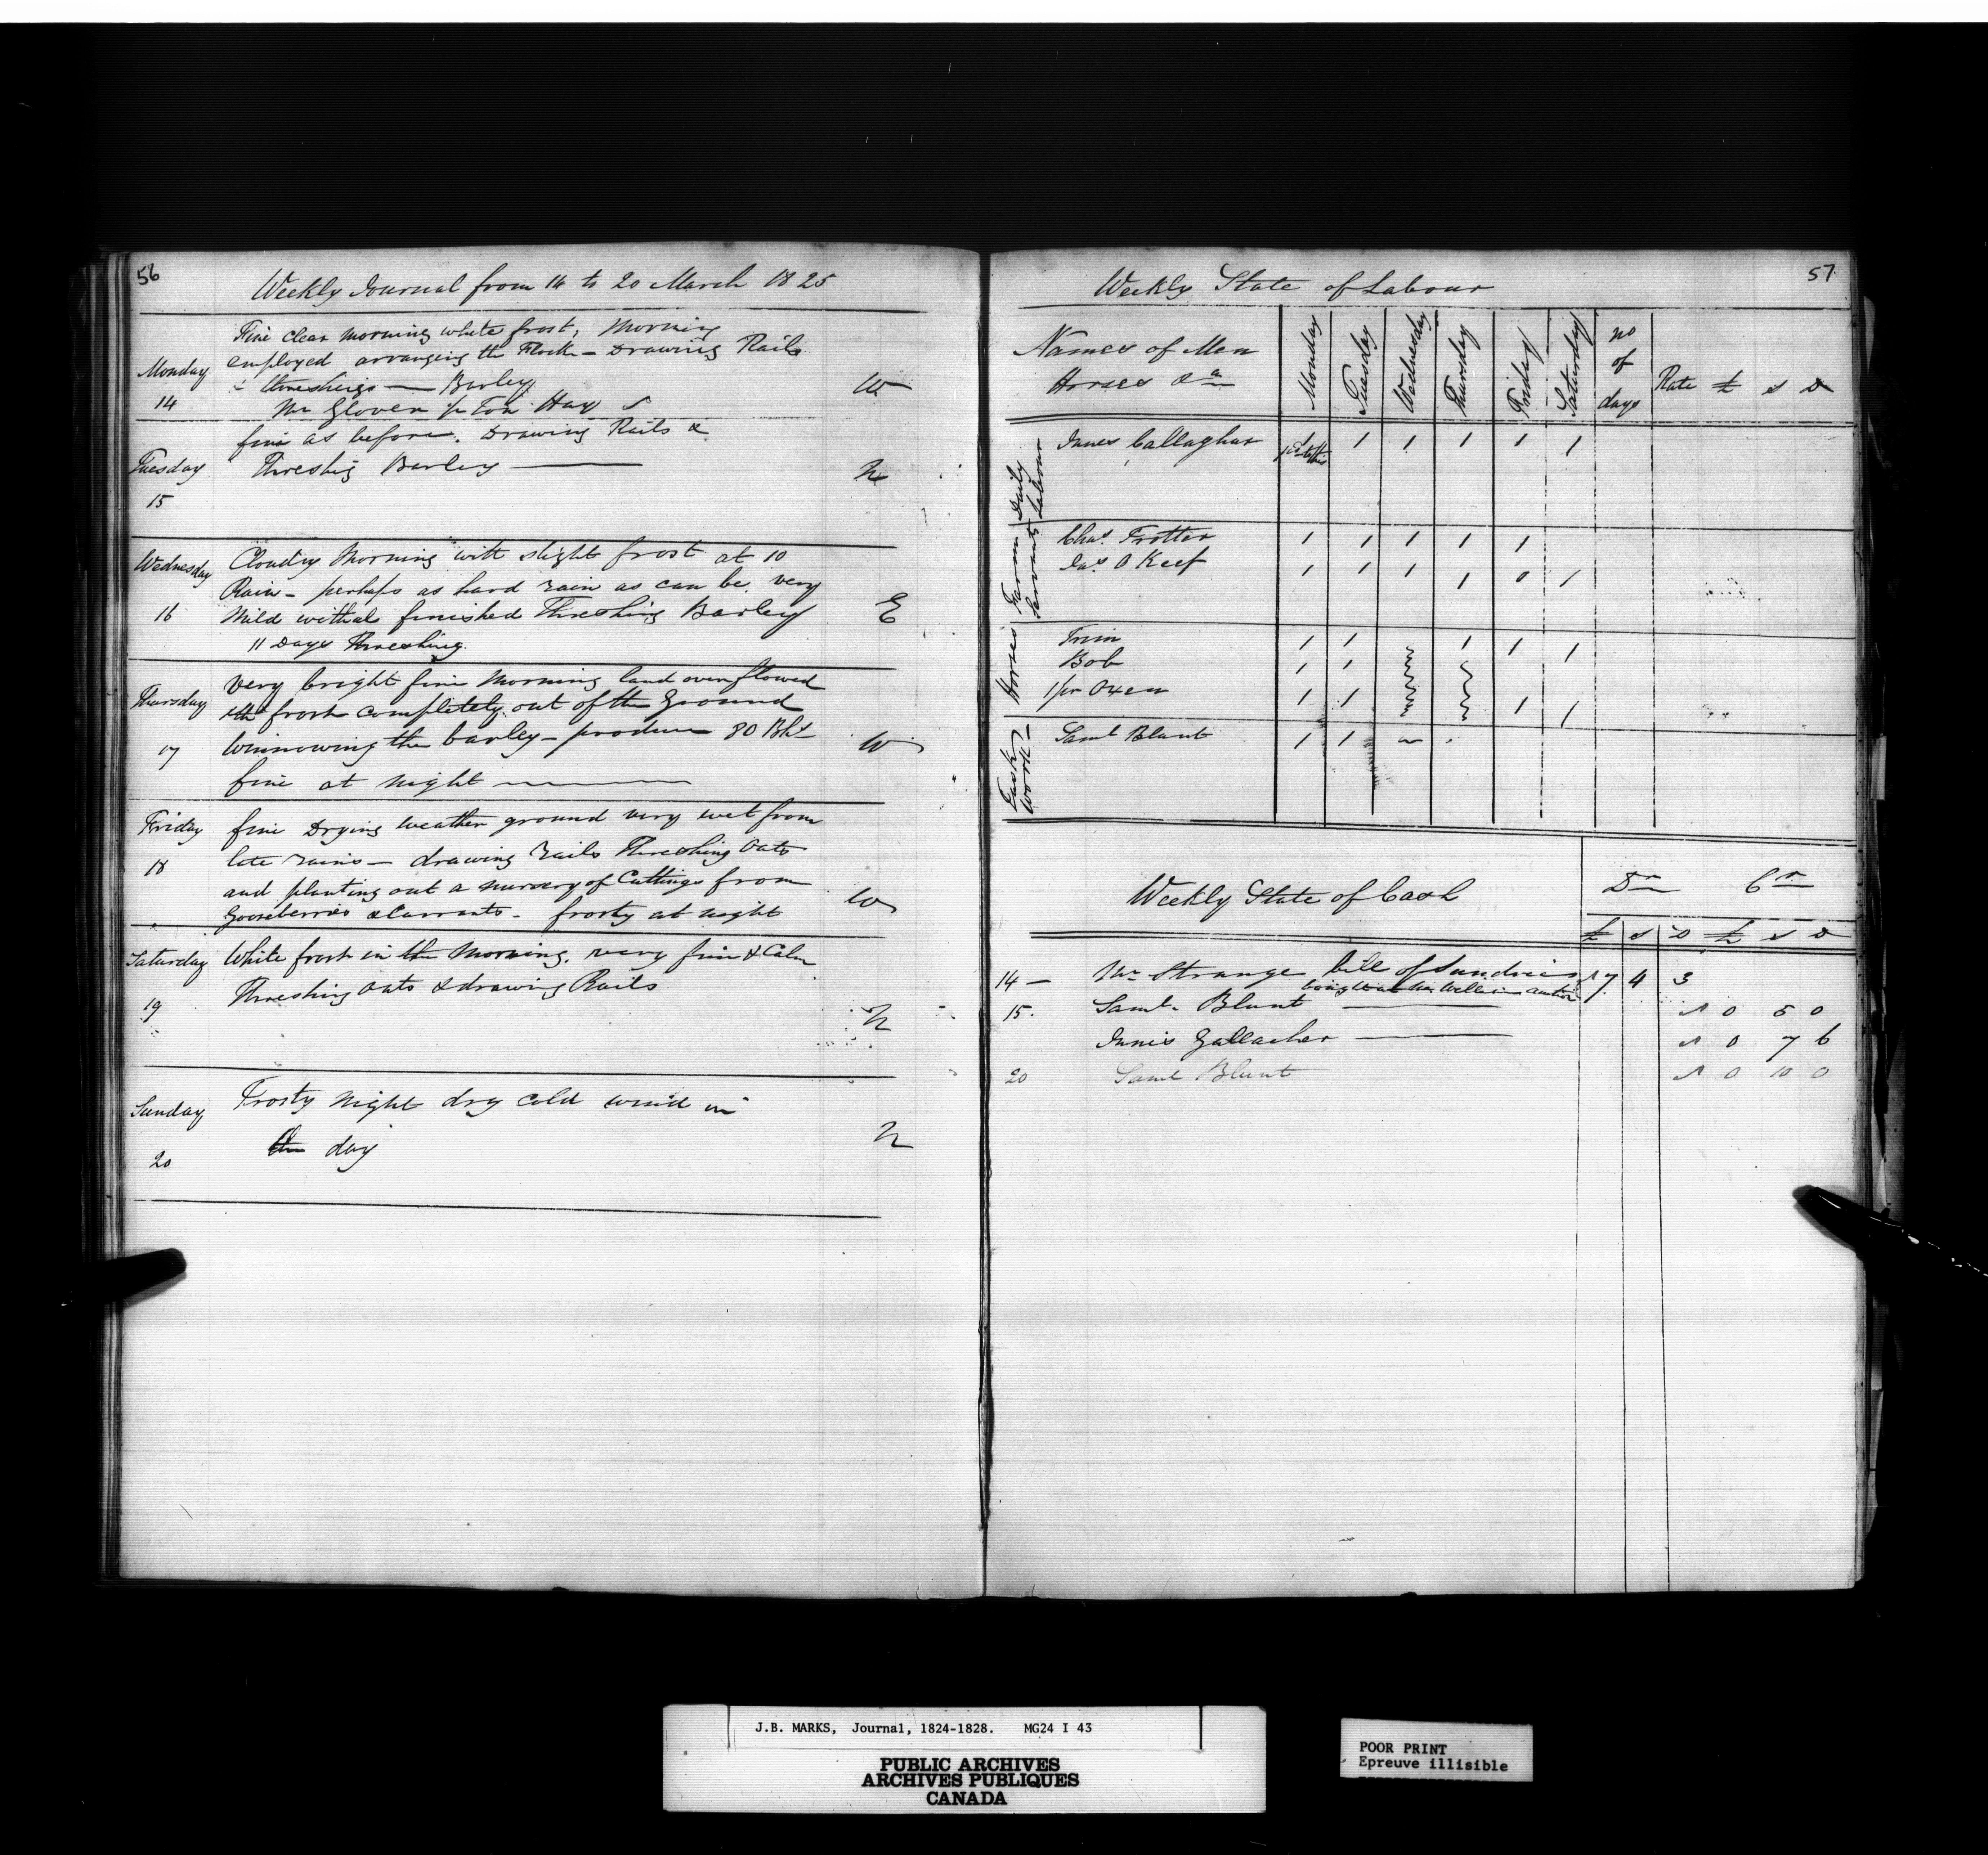 56
Weekly Journal from 14 to 20 March 1825
Monday
14
Fine clear morning white frost, Morning
employed arranging the Flock - Drawing Rails
threshing — Barley
Mr Glover Ton Hay
W
Tuesday
15
fine as before. Drawing Rails &
Threshig Barley —
N
Wednesday
16
Cloudy Morning with slight frost at 10
Rain - perhaps as hard rain as can be. very
Mild withal finished Threshing Barley
11 Days Threshing.
E
Thursday
17
Very bright fine Morning land overflowed
frost completely out of the Ground
Winnowing the barley - produce 80 Bhs
fine at night —
W
Friday
18
fine Drying weather ground very wet from
late rains — drawing rails Threshing Oats
and planting out a nursery of Cuttings from
Gooseberries & Currants - frosty at night
W
Saturday
19
White frost in the Morning. very fine & Calm
Threshing Oats & drawing Rails
N
Sunday
20
Frosty Night dry cold wind in
the day
N
57
Weekly State of Labour
Names of Men
Horses &c
Monday Tuesday Wednesday Thursday Friday Saturday no of days Rate £ s D
Daily Labour
Innes Callaghar 1 1 1 1 1
Farm Servants
Chas. Trotter 1 1 1 1 1
Jas. O Keef 1 1 1 1 0 1
Horses
Trim 1 1 1 1 1
Bob 1 1
1 pr Oxen 1 1 1 1
Task Work
Saml Blunt 1 1
Weekly State of Cash
Dr Cr
£ s D £ s D
14 - Mr Strange bill of Sundries 17 4 3
bought at Mr auction
15. Saml. Blunt — 0 5 0
Innis Gallacher — 0 7 6
20 Saml Blunt 0 10 0
J.B. MARKS, Journal, 1824-1828. MG24 I 43
PUBLIC ARCHIVES
ARCHIVES PUBLIQUES
CANADA
POOR PRINT
Epreuve illisible